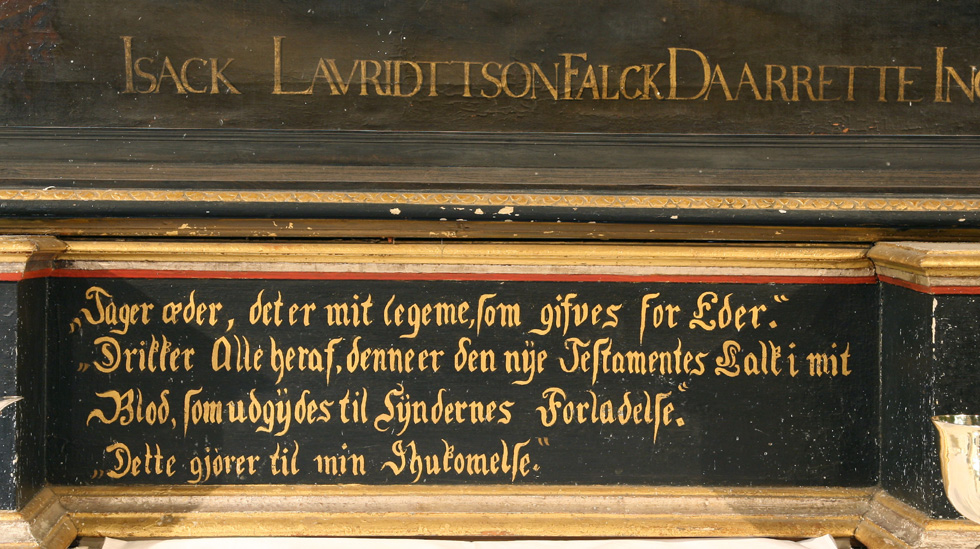 ISACK LAVRIDTTSON FALCK DAARRETTE IN
„Tager æder, det er mit legeme, som gifves for Eder.“
„Drikker Alle heraf, denne er den nÿe Testamentes Lalk i mit
Blod, som udgÿdes til Sÿndernes Forladelse.“
„Dette gjører til min Ihukomelse.“